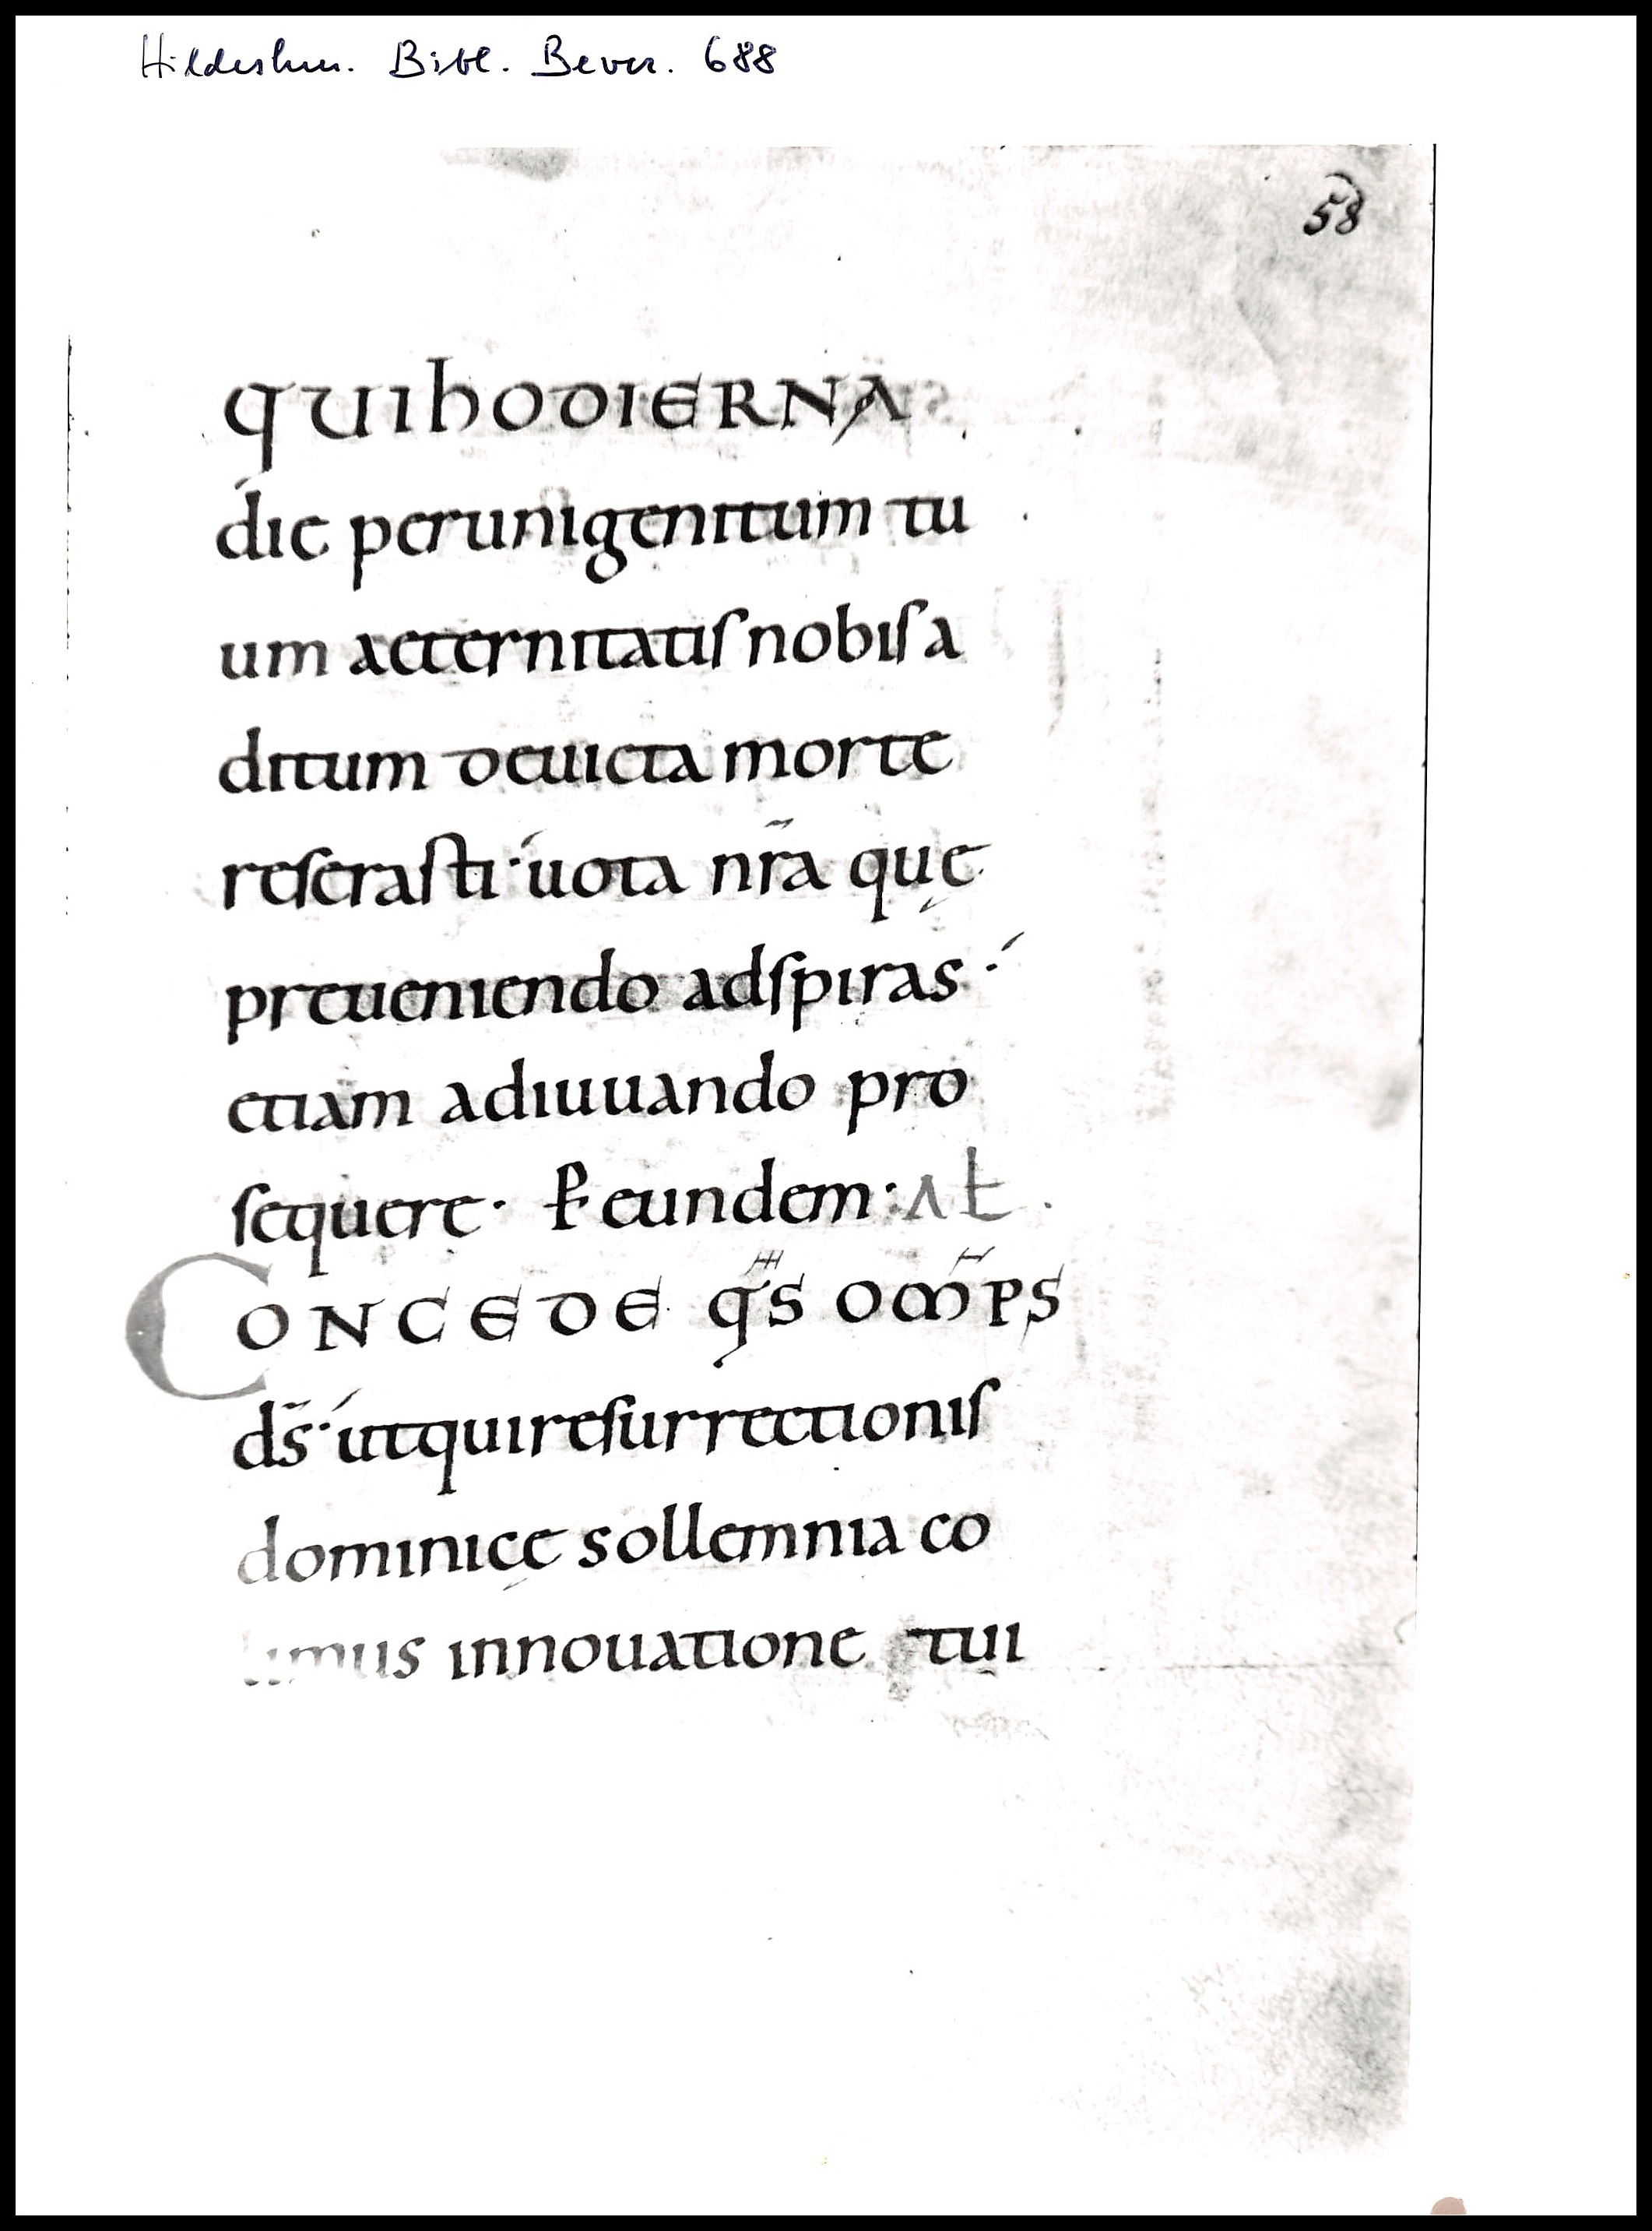 Hildesheim. Bibl. Bever. 688
58
QUIHODIERNA
die perunigenitum tu
um aeternitatiſ nobiſ a
ditum deuicta morte
reſeraſti· uota nr̄a quę
preueniendo adſpiras·
etiam adiuuando pro
ſequere· ꝑ eundem· Aƚ
CONCEDE qs̄ OM̄PS
ds̄· utqui reſurrectioniſ
dominicę sollemnia co
limus innouatione tui